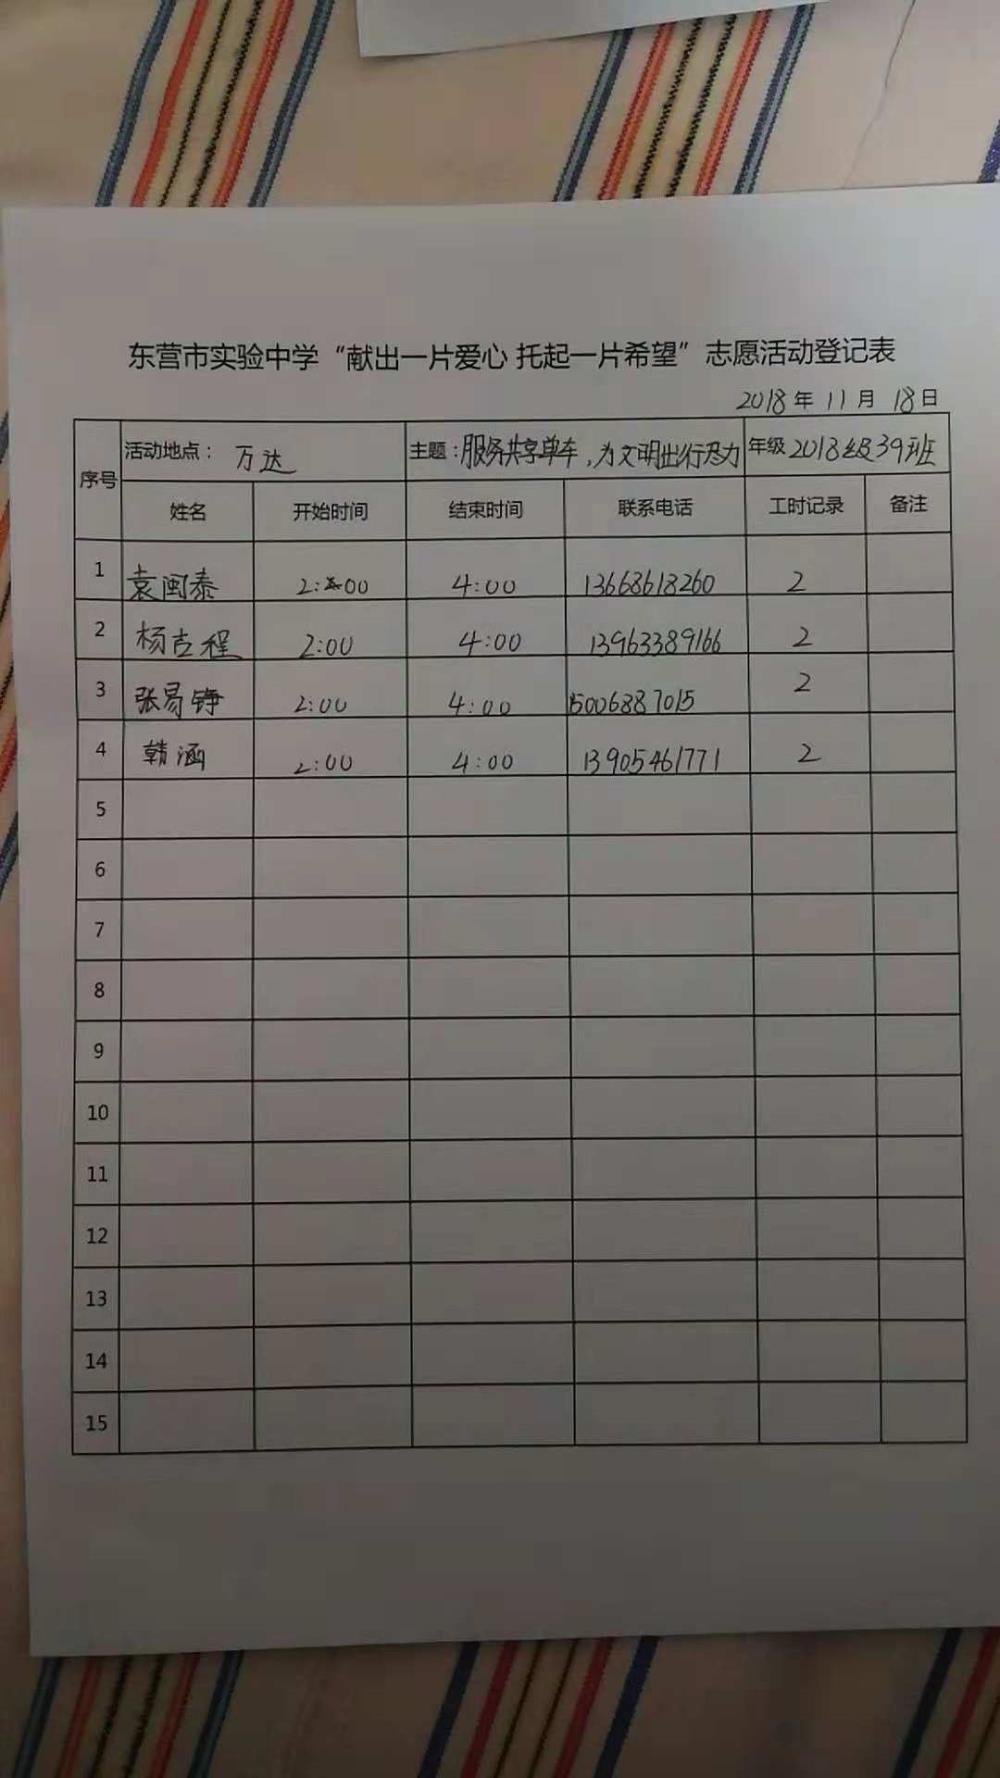 东营市实验中学“献出一片爱心 托起一片希望”志愿活动登记表
2018年 11月 18日
序号 活动地点： 万达 主题：服务共享单车，为文明出行尽力 年级 2018级39班
姓名 开始时间 结束时间 联系电话 工时记录 备注
1 袁闽泰 2:00 4:00 13668618260 2
2 杨吉程 2:00 4:00 13963389166 2
3 张易铮 2:00 4:00 15006887015 2
4 韩涵 2:00 4:00 13905461771 2
5
6
7
8
9
10
11
12
13
14
15